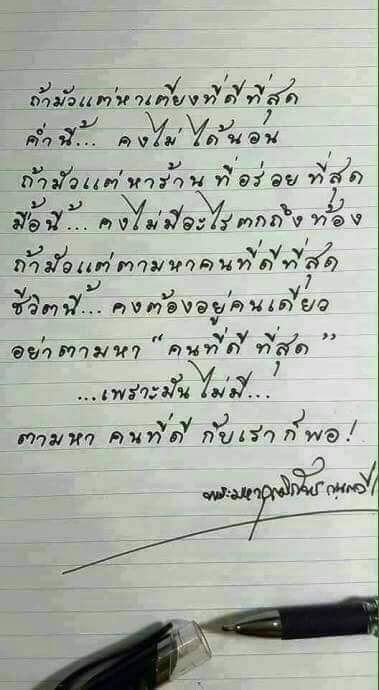 ถ้ามัวแต่หาเตียงที่ดีที่สุด
ค่ำนี้... คงไม่ได้นอน
ถ้ามัวแต่หาร้านที่อร่อยที่สุด
มื้อนี้... คงไม่มีอะไรตกถึงท้อง
ถ้ามัวแต่ตามหาคนที่ดีที่สุด
ชีวิตนี้... คงต้องอยู่คนเดียว
อย่าตามหา "คนที่ดีที่สุด"
...เพราะมันไม่มี...
ตามหา คนที่ดี กับเราก็พอ!
พระมหา